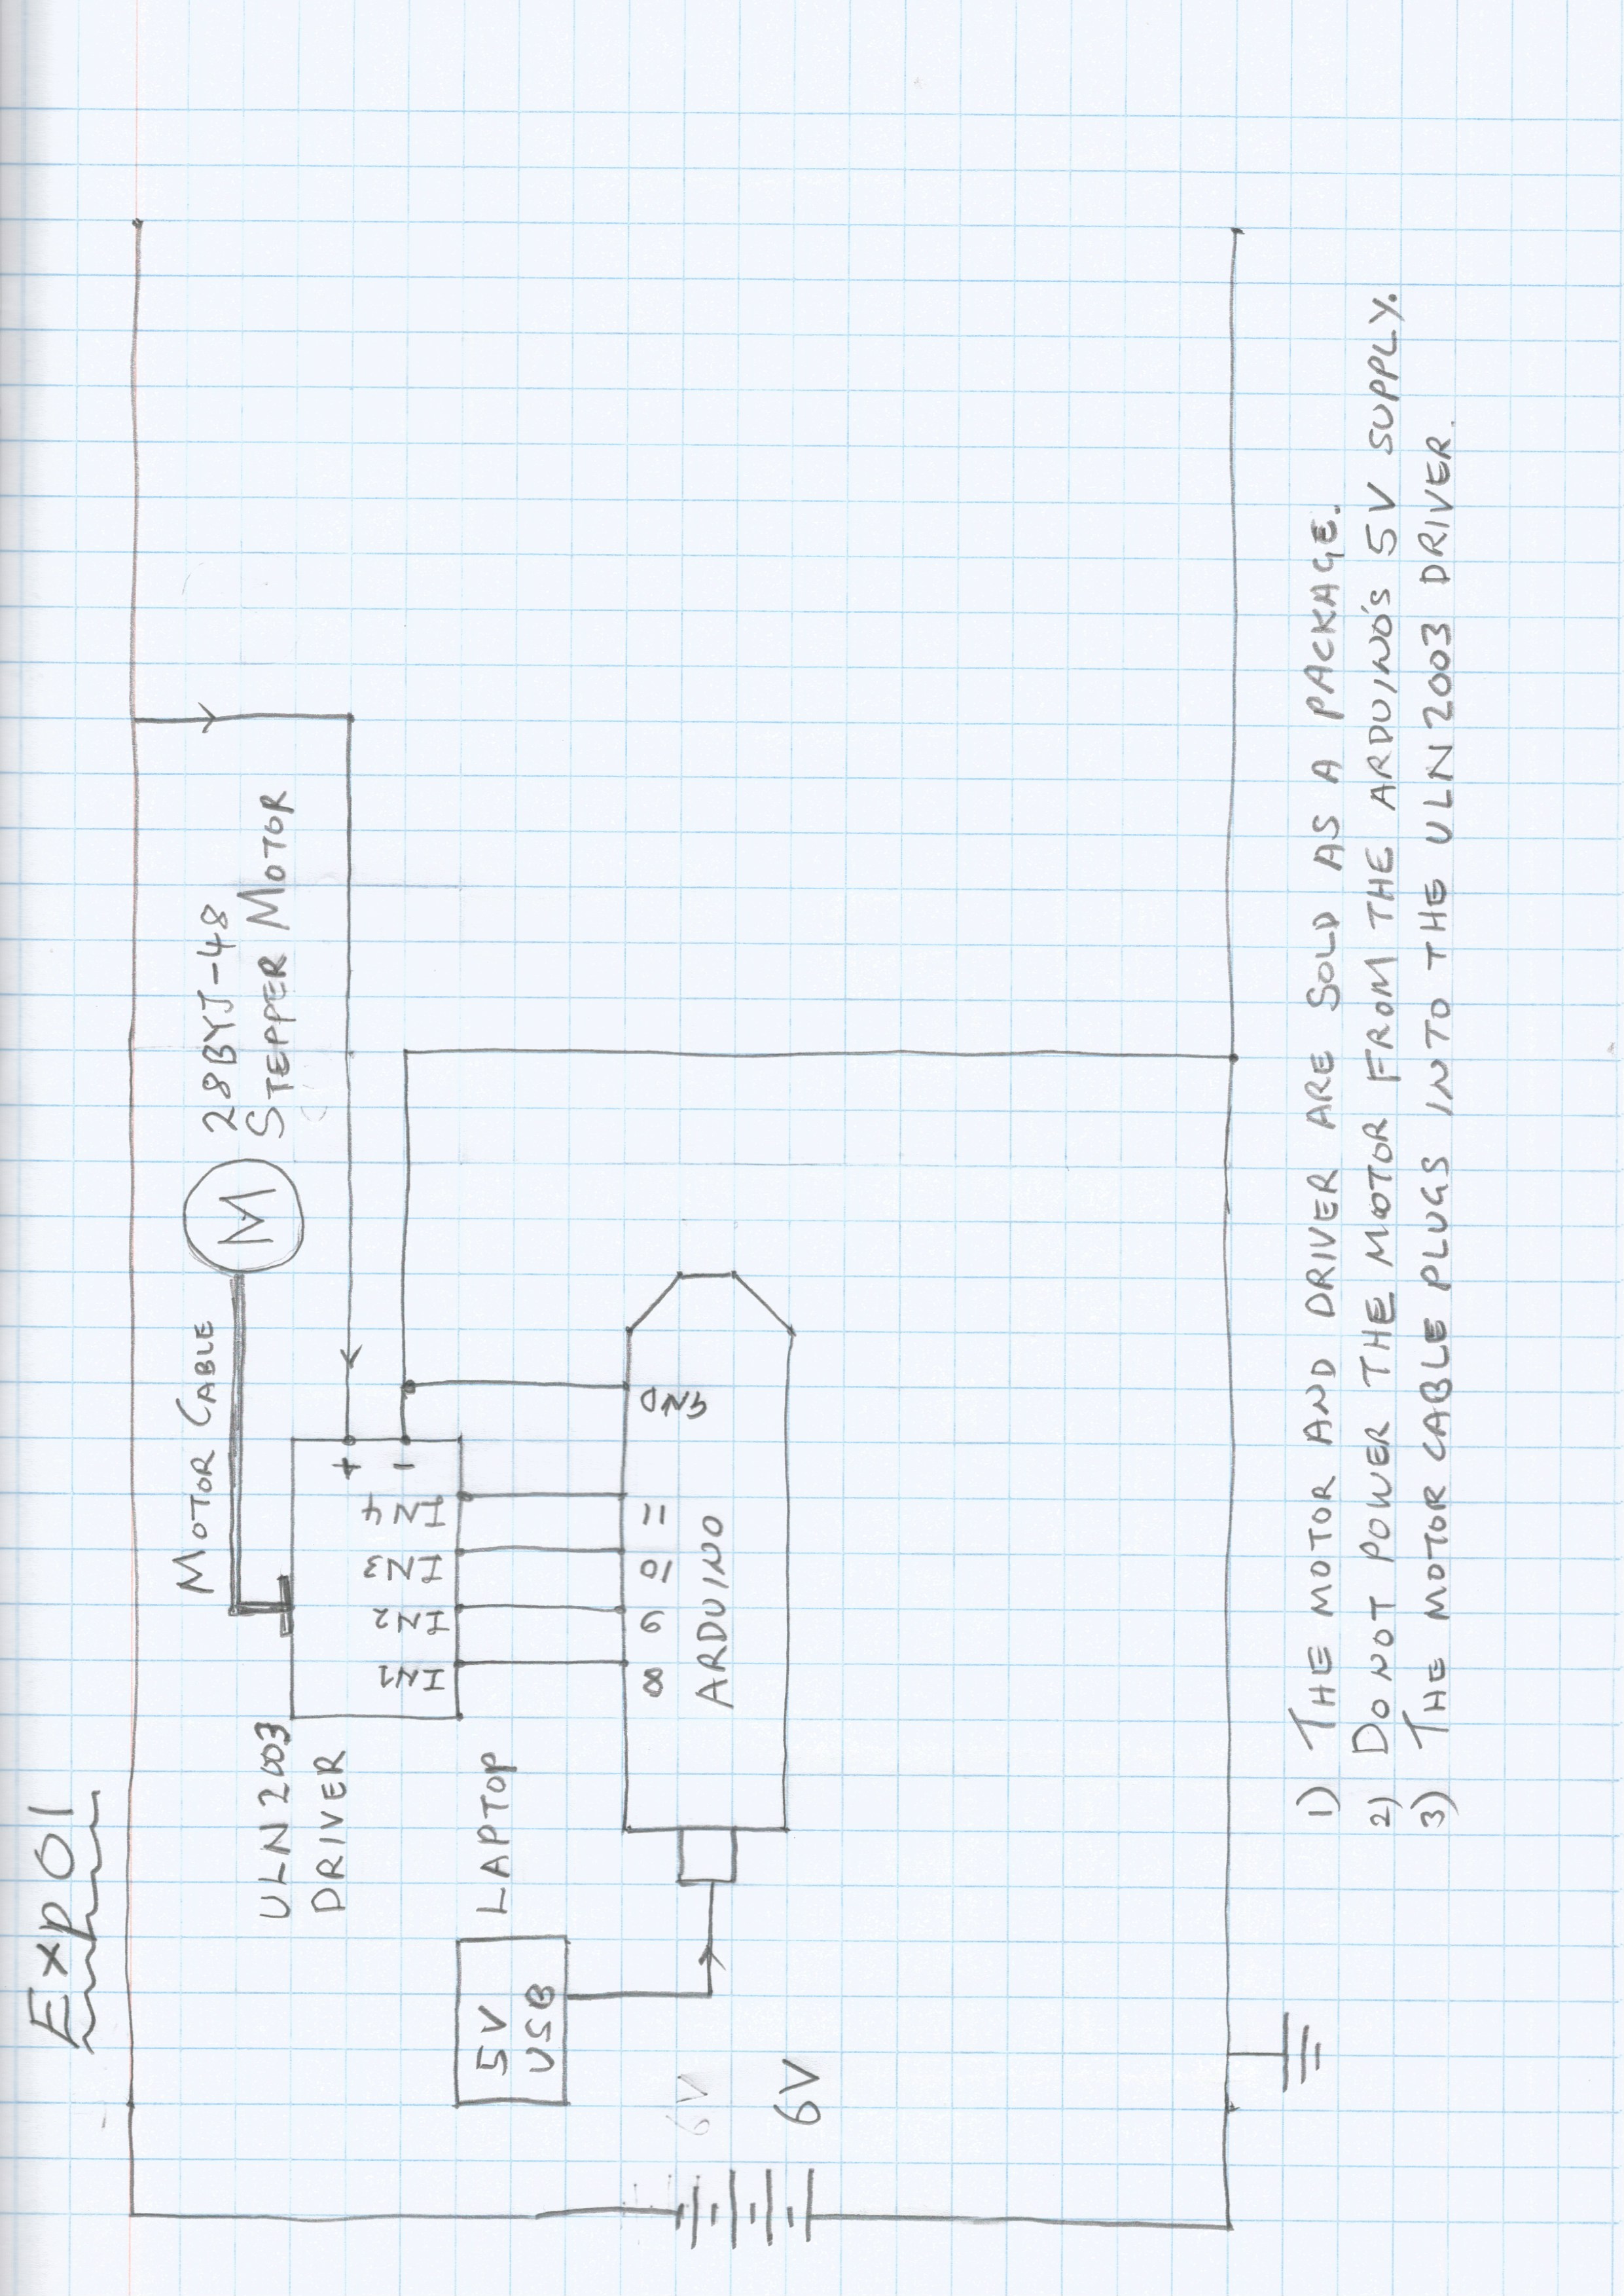 Exp 01
MOTOR CABLE
M
28BYJ-48
STEPPER MOTOR
ULN2003
DRIVER
+
-
IN1 IN2 IN3 IN4
5V
USB
LAPTOP
8 9 10 11 GND
ARDUINO
6V
6V
1) THE MOTOR AND DRIVER ARE SOLD AS A PACKAGE.
2) DO NOT POWER THE MOTOR FROM THE ARDUINO'S 5V SUPPLY.
3) THE MOTOR CABLE PLUGS INTO THE ULN2003 DRIVER.